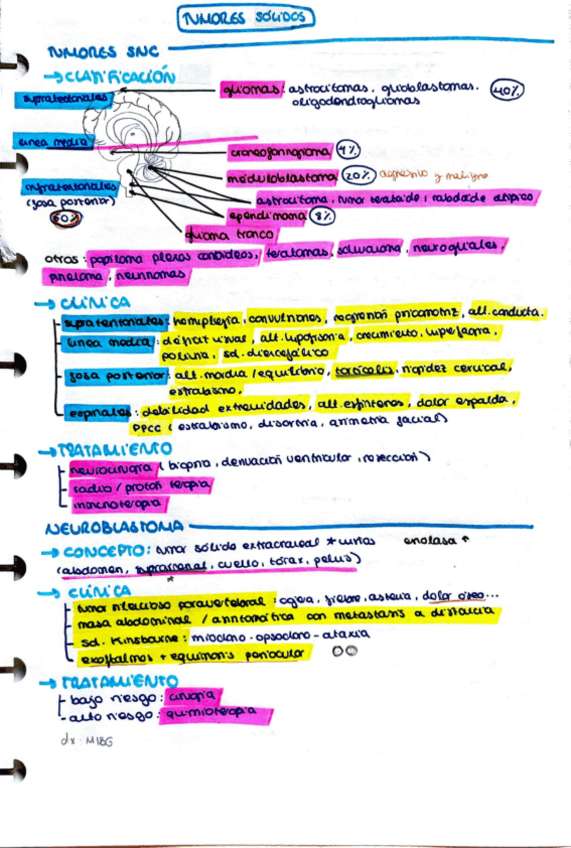 TUMORES SÓLIDOS
TUMORES SNC
→ CLASIFICACIÓN
supratentoriales
gliomas: astrocitomas, glioblastomas, 40%
oligodendrogliomas
línea media
craneofaringioma 9%
meduloblastoma 20% agresivo y maligno
infratentoriales
(fosa posterior)
60%
astrocitoma, tumor teratoide / rabdoide atípico
ependimoma 8%
glioma tronco
otros: papiloma plexos coroideos, teratomas, schwanoma, neurogliales,
pineloma, neurinomas
→ CLÍNICA
supratentoriales: hemiplejia, convulsiones, regresión psicomotriz, alt. conducta.
línea media: déficit visual, alt. hipofisaria, crecimiento, hiperfagia,
poliuria, sd. diencefálico
fosa posterior: alt. marcha / equilibrio, tortícolis, rigidez cervical,
estrabismo,
espinales: debilidad extremidades, alt. esfínteres, dolor espalda,
PPCC (estrabismo, disartria, asimetría facial)
→ TRATAMIENTO
neurocirugía (biopsia, derivación ventricular, resección)
radio / protón terapia
inmunoterapia
NEUROBLASTOMA
→ CONCEPTO: tumor sólido extracraneal * enolasa ↑
(abdomen, suprarrenal, cuello, tórax, pelvis)
*
→ CLÍNICA
tumor paravertebral: fiebre, astenia, dolor óseo...
masa abdominal / asintomática con metástasis a distancia
sd. Kinsbourne: mioclono - opsoclono - ataxia
exoftalmos + equimosis periocular
→ TRATAMIENTO
- bajo riesgo: cirugía
- alto riesgo: quimioterapia
dx · MIBG